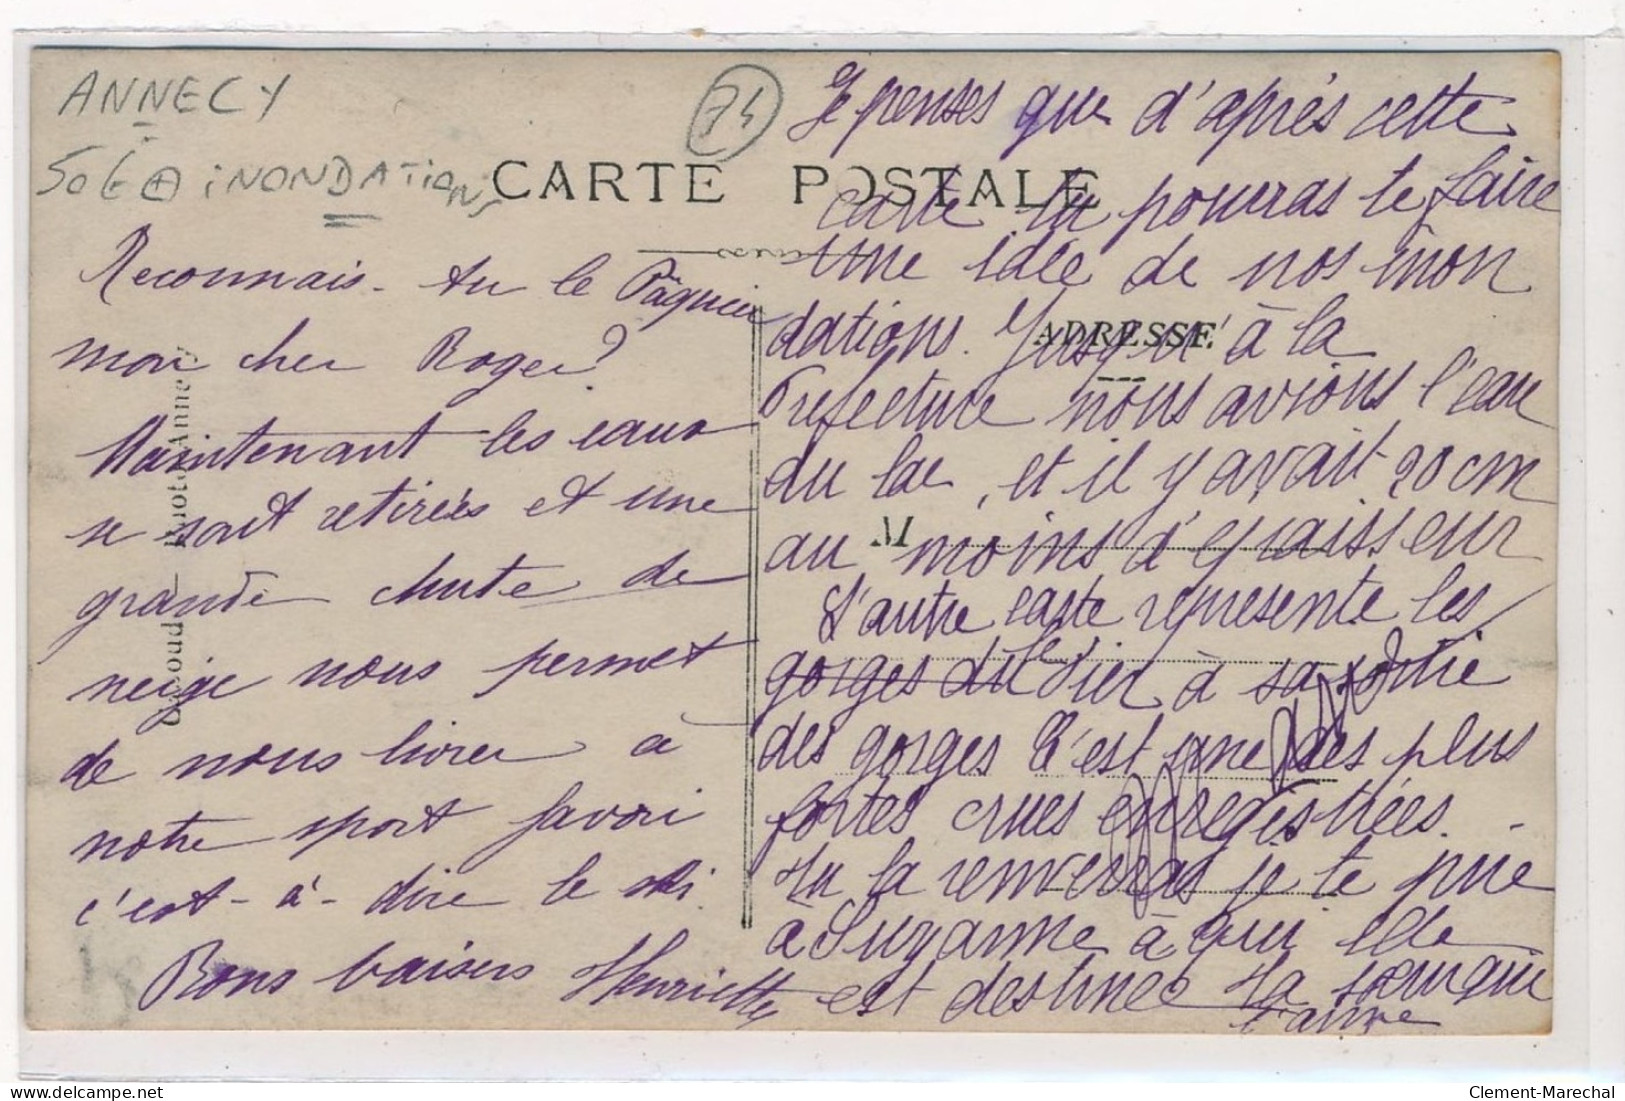 ANNECY
74
50€ inondations
CARTE POSTALE
Reconnais-tu le Pâquier
mon cher Roger?
Maintenant les eaux
se sont retirées et une
grande chute de
neige nous permet
de nous livrer à
notre sport favori
c'est-à-dire le ski.
Bons baisers Henriette
Je penses que d'après cette
carte tu pourras te faire
une idée de nos inon
dations. Jusqu'à la
ADRESSE
Prefecture nous avions l'eau
du lac, et il y avait 20 cm
M
au moins d'épaisseur
L'autre carte represente les
gorges du le Fier à sa sortie
des gorges C'est une des plus
fortes crues enregistrées.
Tu la renverras je te prie
à Suzanne à qui elle
est destinée Ta sœur qui
t'aime
Photo Annecy
Clement-Marechal
delcampe.net